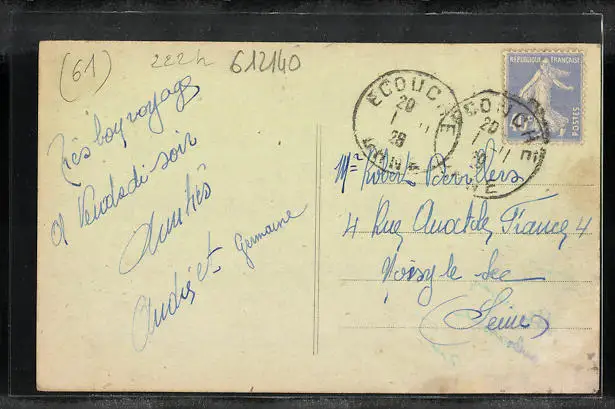 (61) 222h 612140
Très bon voyage
a Vendredi soir
Amitiés
André et Germaine
ECOUCHE
20
1 - 11
28
ORNE
ECOUCHE
20
1 - 11
ORNE
REPUBLIQUE FRANÇAISE
POSTES
Mr Robert
4 Rue Anatole France 4
Noisy le Sec
(Seine)